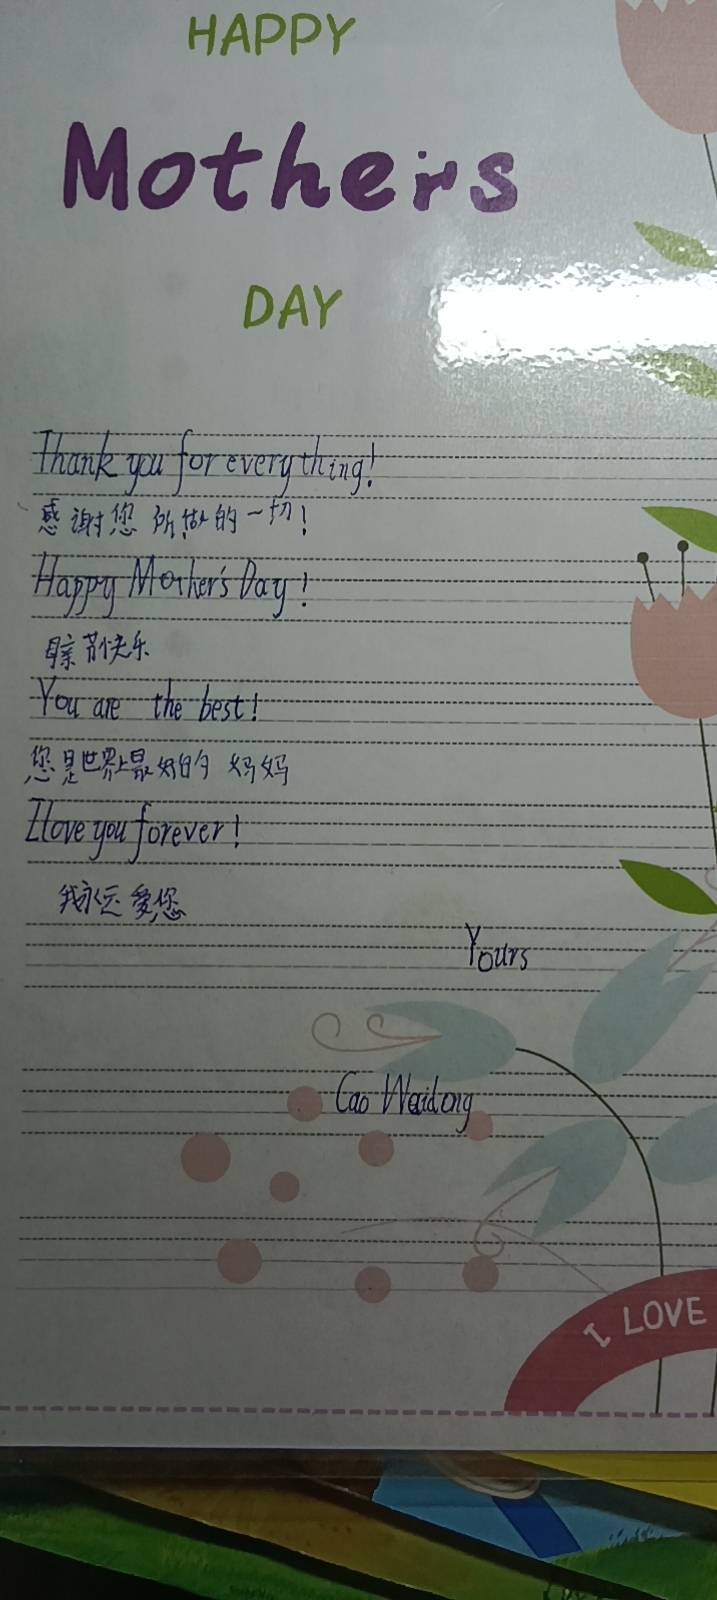 HAPPY
Mothers
DAY
Thank you for everything!
感谢您 所做的一切!
Happy Mother's Day!
母亲节快乐
You are the best!
您是世界上最好的 妈妈
I love you forever!
我永远爱您
Yours
Cao Weidong
I LOVE